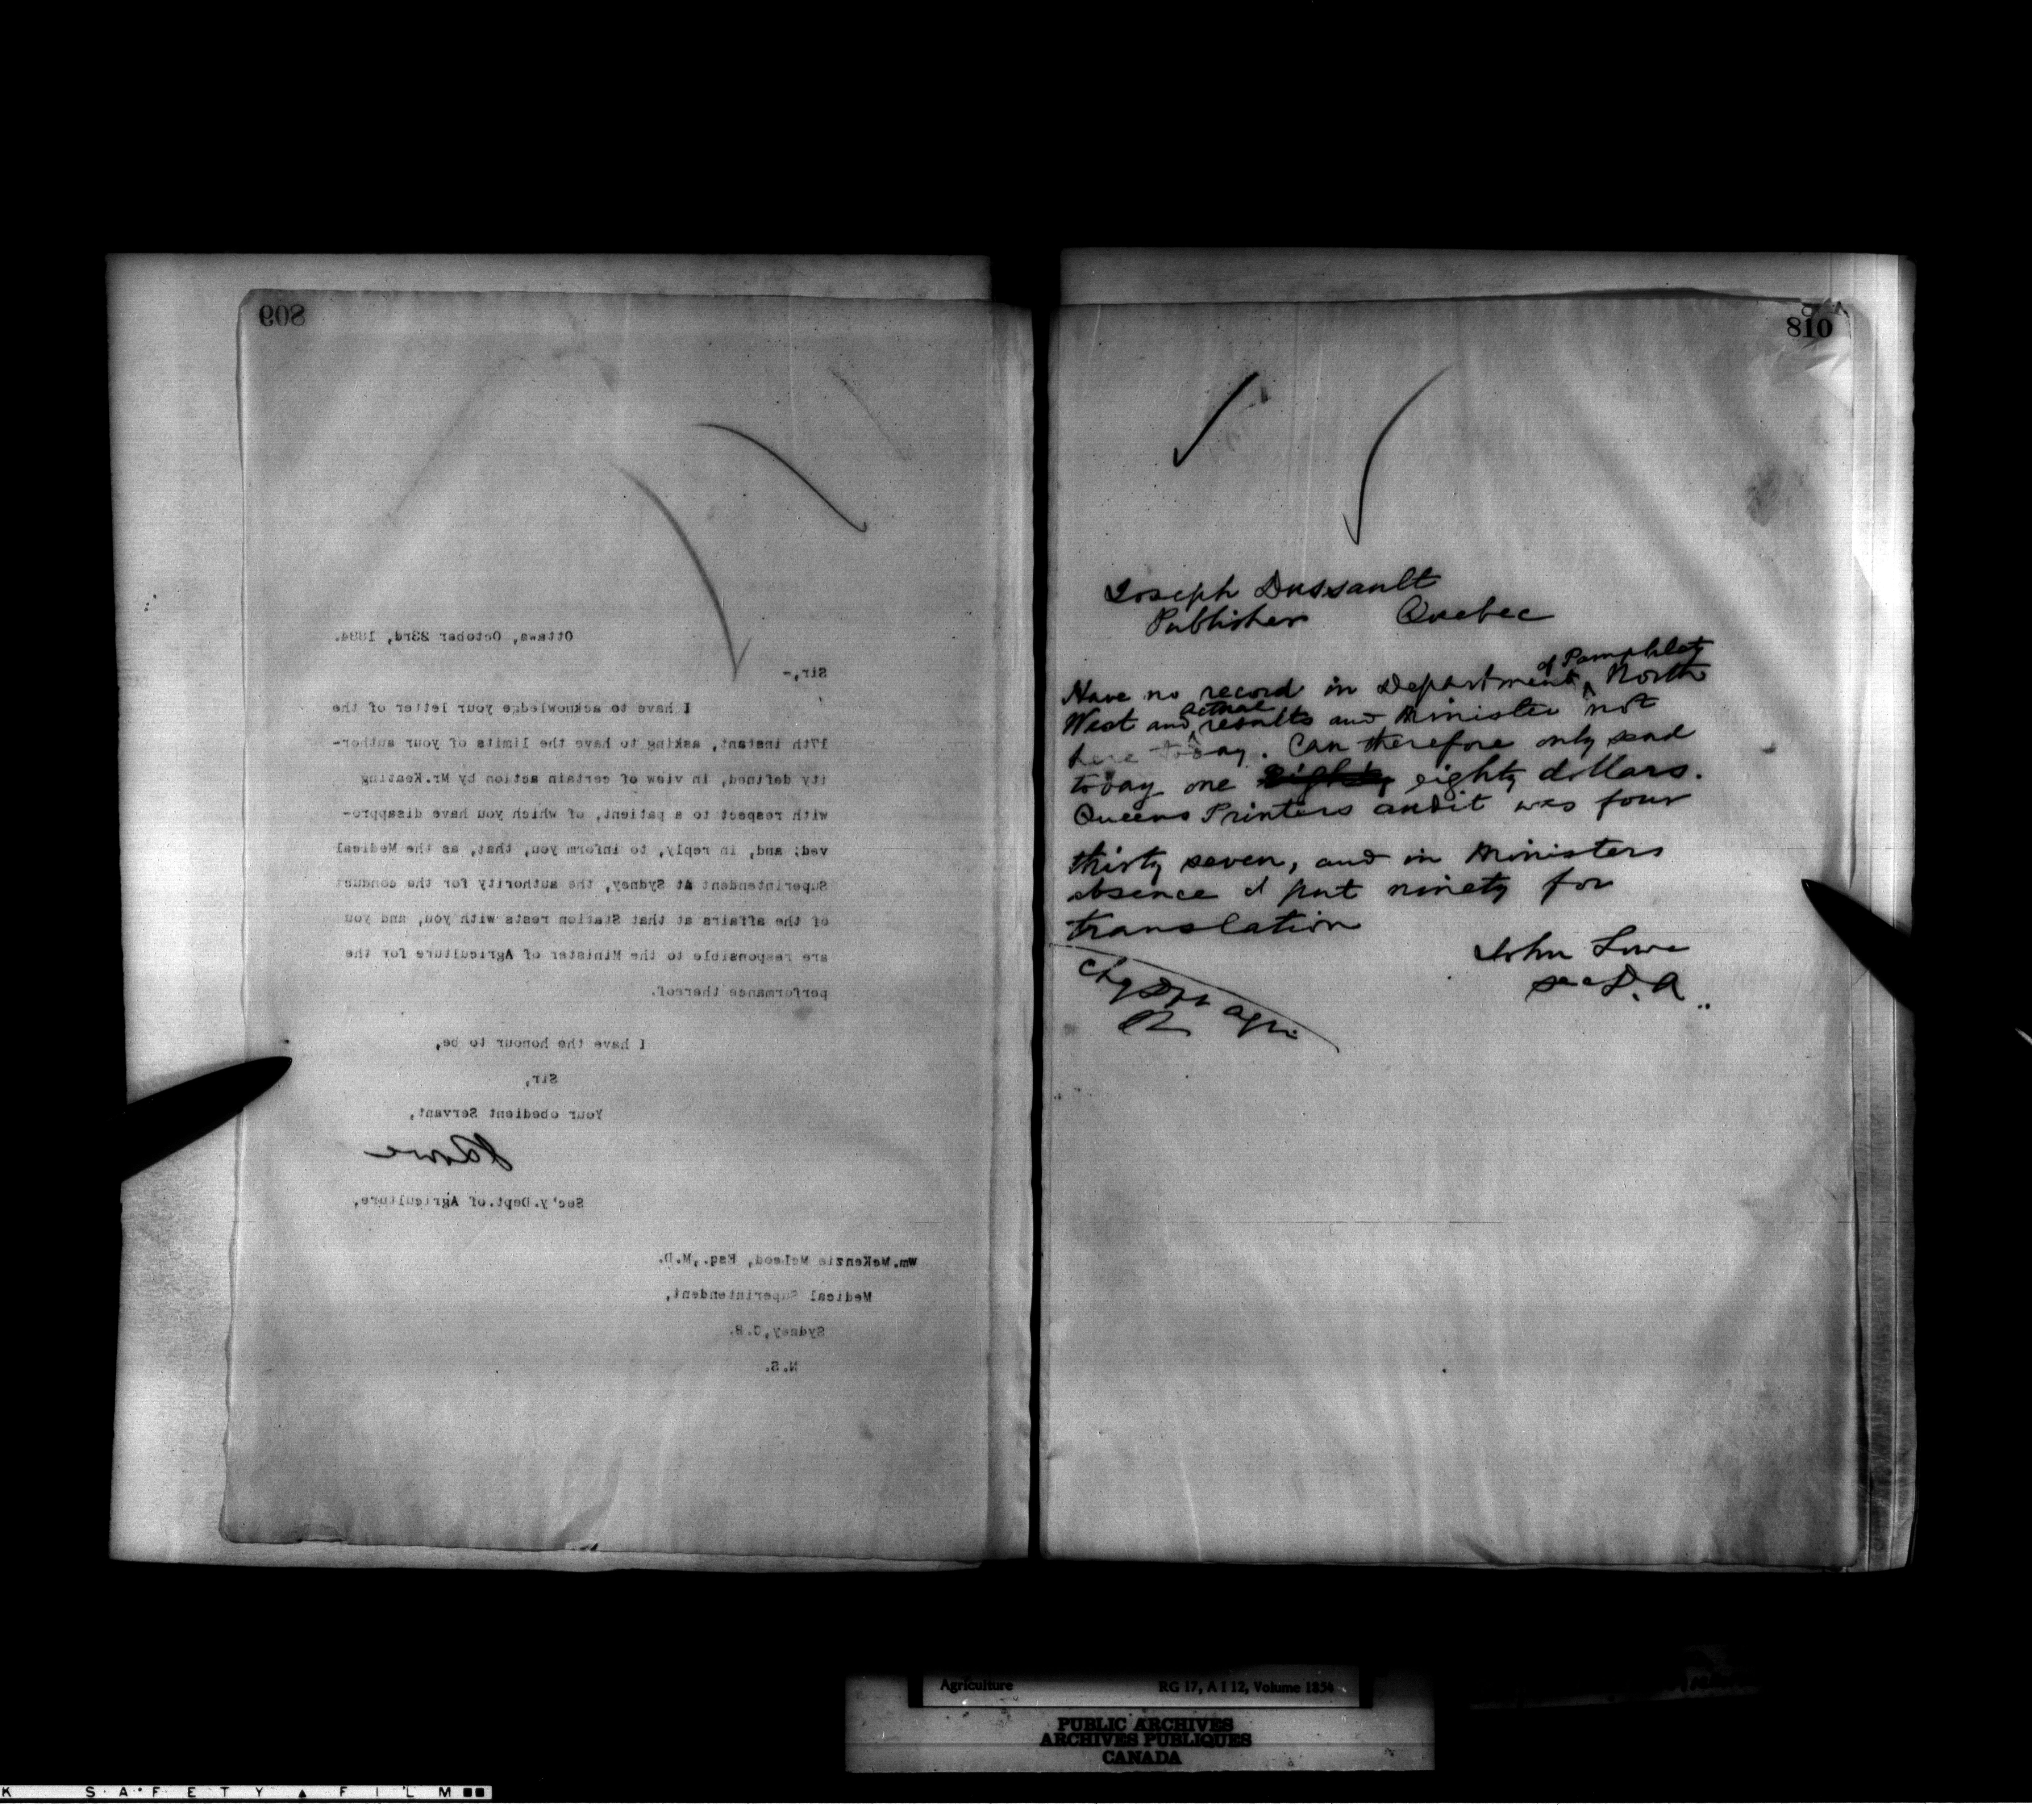 809
Ottawa, October 23rd, 1884.
Sir,-
I have to acknowledge your letter of the
17th instant, asking to have the limits of your author-
ity defined, in view of certain action by Mr.Keating
with respect to a patient, of which you have disappro-
ved; and, in reply, to inform you, that, as the Medical
Superintendent at Sydney, the authority for the conduct
of the affairs at that Station rests with you, and you
are responsible to the Minister of Agriculture for the
performance thereof.
I have the honour to be,
Sir,
Your obedient Servant,
J Lowe
Sec'y.Dept.of Agriculture,
Wm.McKenzie McLeod, Esq.,M.D.
Medical Superintendent,
Sydney,C.B.
N.S.
810
Joseph Dussault
Publisher Quebec
of Pamphlets
Have no record in Department North
actual
West and results and Minister not
here today. Can therefore only send
today one eighty eighty dollars.
Queens Printers audit was four
thirty seven, and in Ministers
absence I put ninety for
translation
John Lowe
Sec D.A.
Chg Dept Agri
Agriculture RG 17, A I 12, Volume 1854
PUBLIC ARCHIVES
ARCHIVES PUBLIQUES
CANADA
K SAFETY ▲ FILM